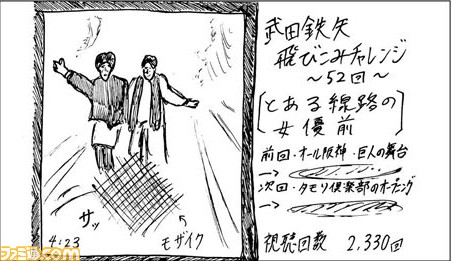 武田鉄矢
飛びこみチャレンジ
～52回～
[とある線路の
女優前]
前回・オール阪神・巨人の舞台
→
次回・タモリ倶楽部のオープニング
→
視聴回数 2,330回
サッ
モザイク
4:23
ファミ通.com